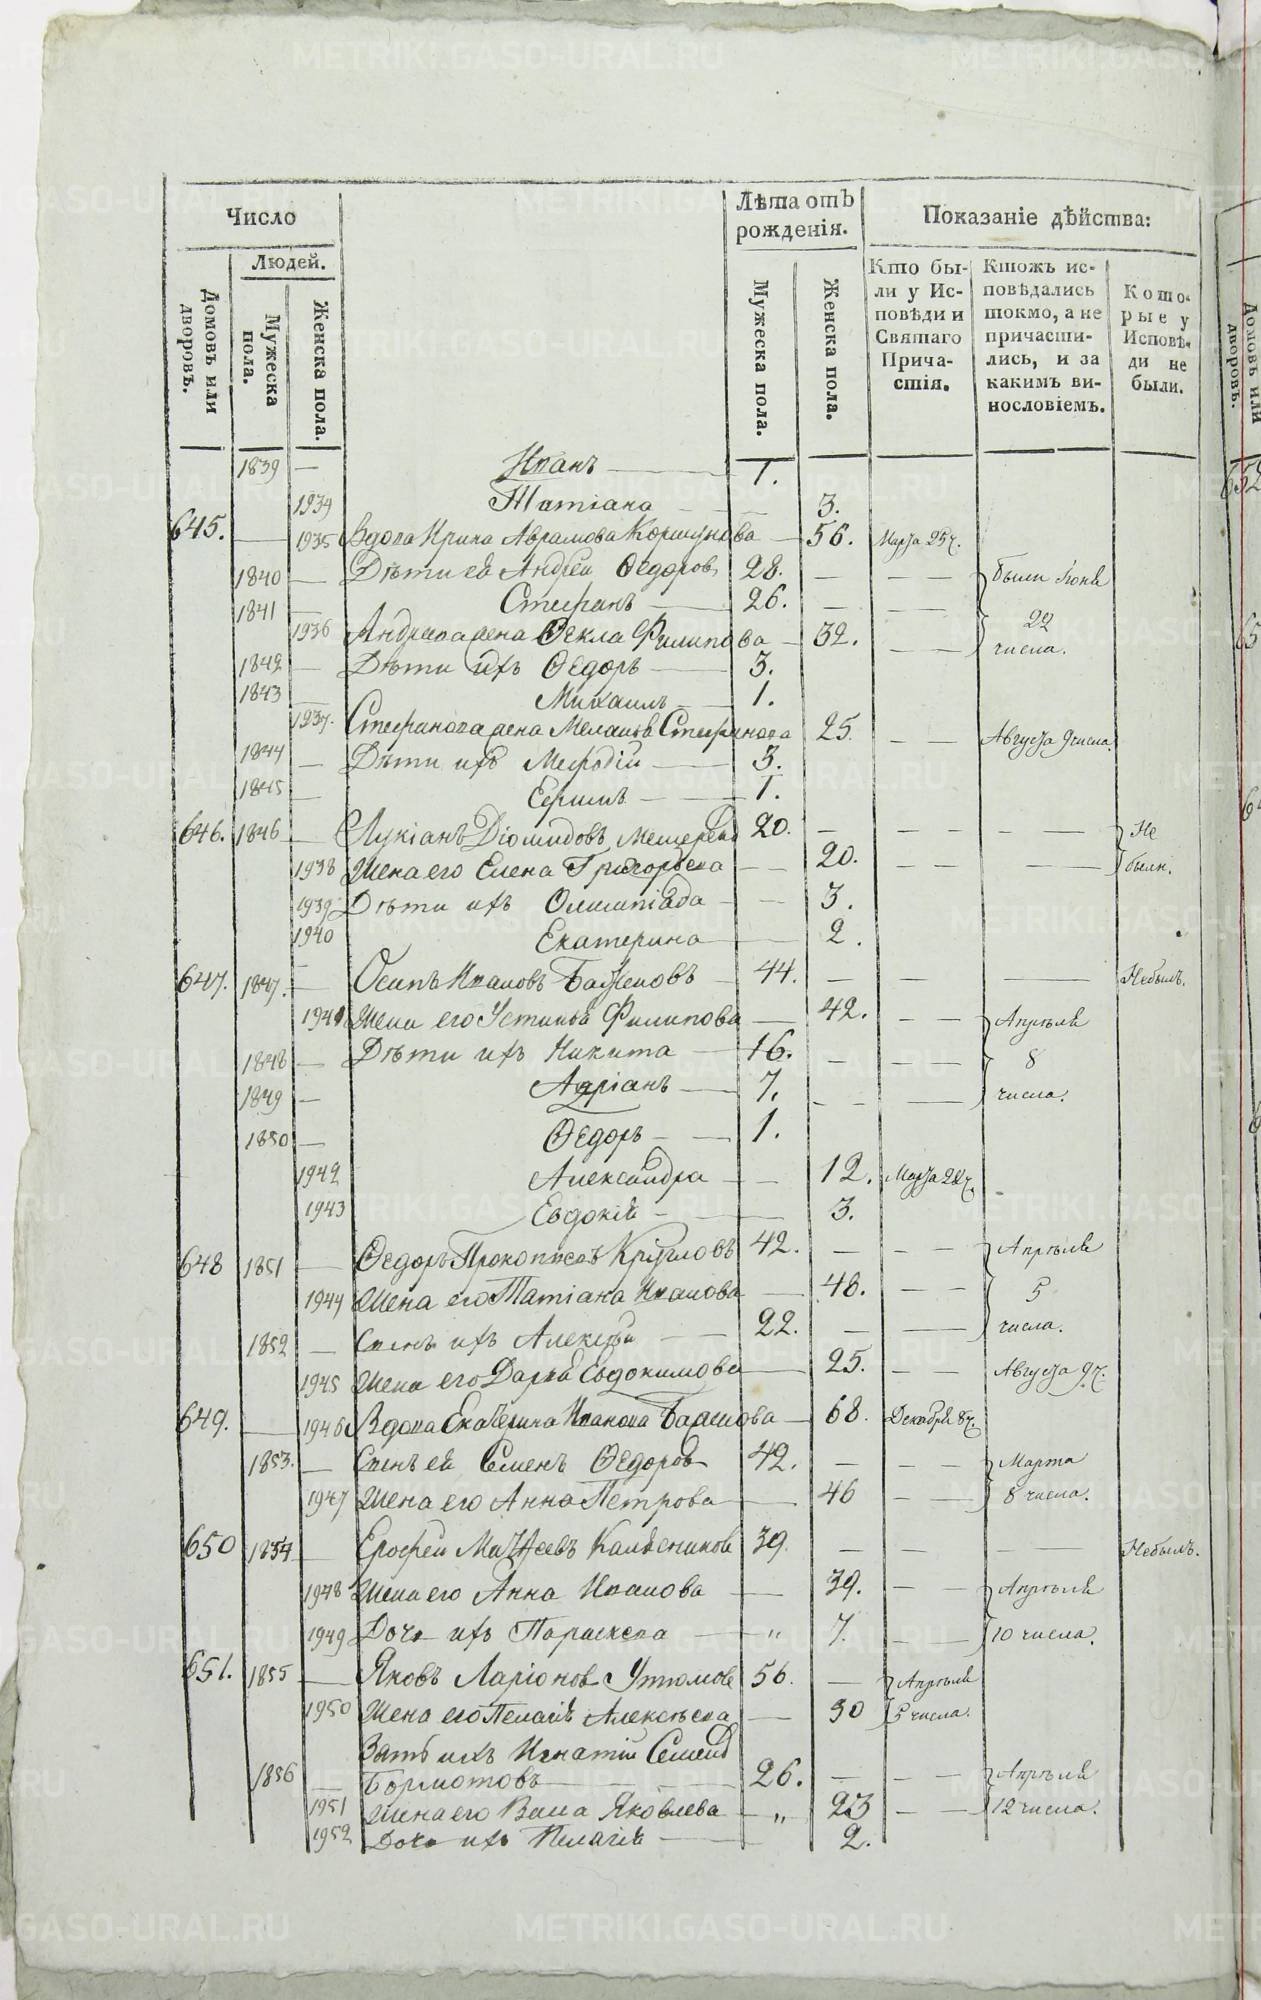 Число
Людей.
Домовъ или дворовъ.
Мужеска пола.
Женска пола.
Лѣта отъ рожденія.
Мужеска пола.
Женска пола.
Показаніе дѣйства:
Кто бы-
ли у Ис-
повѣди и
Святаго
Прича-
стія.
Ктожъ ис-
повѣдались
токмо, а не
причасти-
лись, и за
какимъ ви-
нословіемъ.
Кото-
рые у
Исповѣ-
ди не
были.
1839 — Иванъ — 1.
1934 Татіана — 3.
645. — 1935 Вдова Ирина Аврамова Коршунова — 56. Марта 25 ч.
1840 — Дѣти ея Андрей Ѳедоровъ 28. — — были Іюня
1841 — Стефанъ — 26. — — 22
1936 Андреева жена Ѳекла Филипова — 32. — — числа.
1842 — Дѣти ихъ Ѳедоръ — 3.
1843 — Михаилъ — 1.
1937. Стефанова жена Меланія Стефанова 25. — — Августа 9 числа.
1844 — Дѣти ихъ Мефодій — 3.
1845 — Ефимъ — 1.
646. 1846 — Лукіанъ Діомидовъ 20. — — — Не
1938 Жена его Елена Григорьева — 20. — — — были.
1939 Дѣти ихъ Олимпіада — 3.
1940 Екатерина — 2.
647. 1847. — Осипъ Ивановъ Баженовъ — 44. — — Небылъ.
1941 Жена его Устинья Филипова — 42. — — Апрѣля
1848 — Дѣти ихъ Никита — 16. — — 8
1849 — Адріанъ — 7. — — числа.
1850 — Ѳедоръ — 1.
1942 Александра — 12. Марта 28 ч.
1943 Евдокія — 3.
648 1851 — Ѳедоръ Прокопьевъ Кругловъ 42. — — Апрѣля
1944 Жена его Татіана Иванова — 48. — — 5
1852 — Сынъ ихъ Алексѣй — 22. — — числа.
1945 Жена его Дарья Евдокимова — 25. — — Августа 9 ч.
649. — 1946 Вдова Екатерина Иванова Баженова — 68. Декабря 8 ч.
1853. — Сынъ ея Семенъ Ѳедоровъ 42. — — Марта
1947 Жена его Анна Петрова — 46 — — 8 числа.
650 1854 — Ерофей Матѳеевъ 39. — — — Небылъ.
1948 Жена его Анна Иванова — 39. — — Апрѣля
1949 Дочь ихъ Параскева — „ 7. — — 10 числа.
651. 1855 — Яковъ Ларіоновъ Утюмовъ 56. — Апрѣля
1950 Жена его Пелагія Алексѣева — 50 5 числа.
Зять ихъ Игнатій Семеновъ
1856 — Бормотовъ — 26. — — Апрѣля
1951 Жена его Васса Яковлева — „ 23 — — 12 числа.
1952 Дочь ихъ Пелагія — 2.
Домовъ или
дворовъ.
652
METRIKI.GASO-URAL.RU